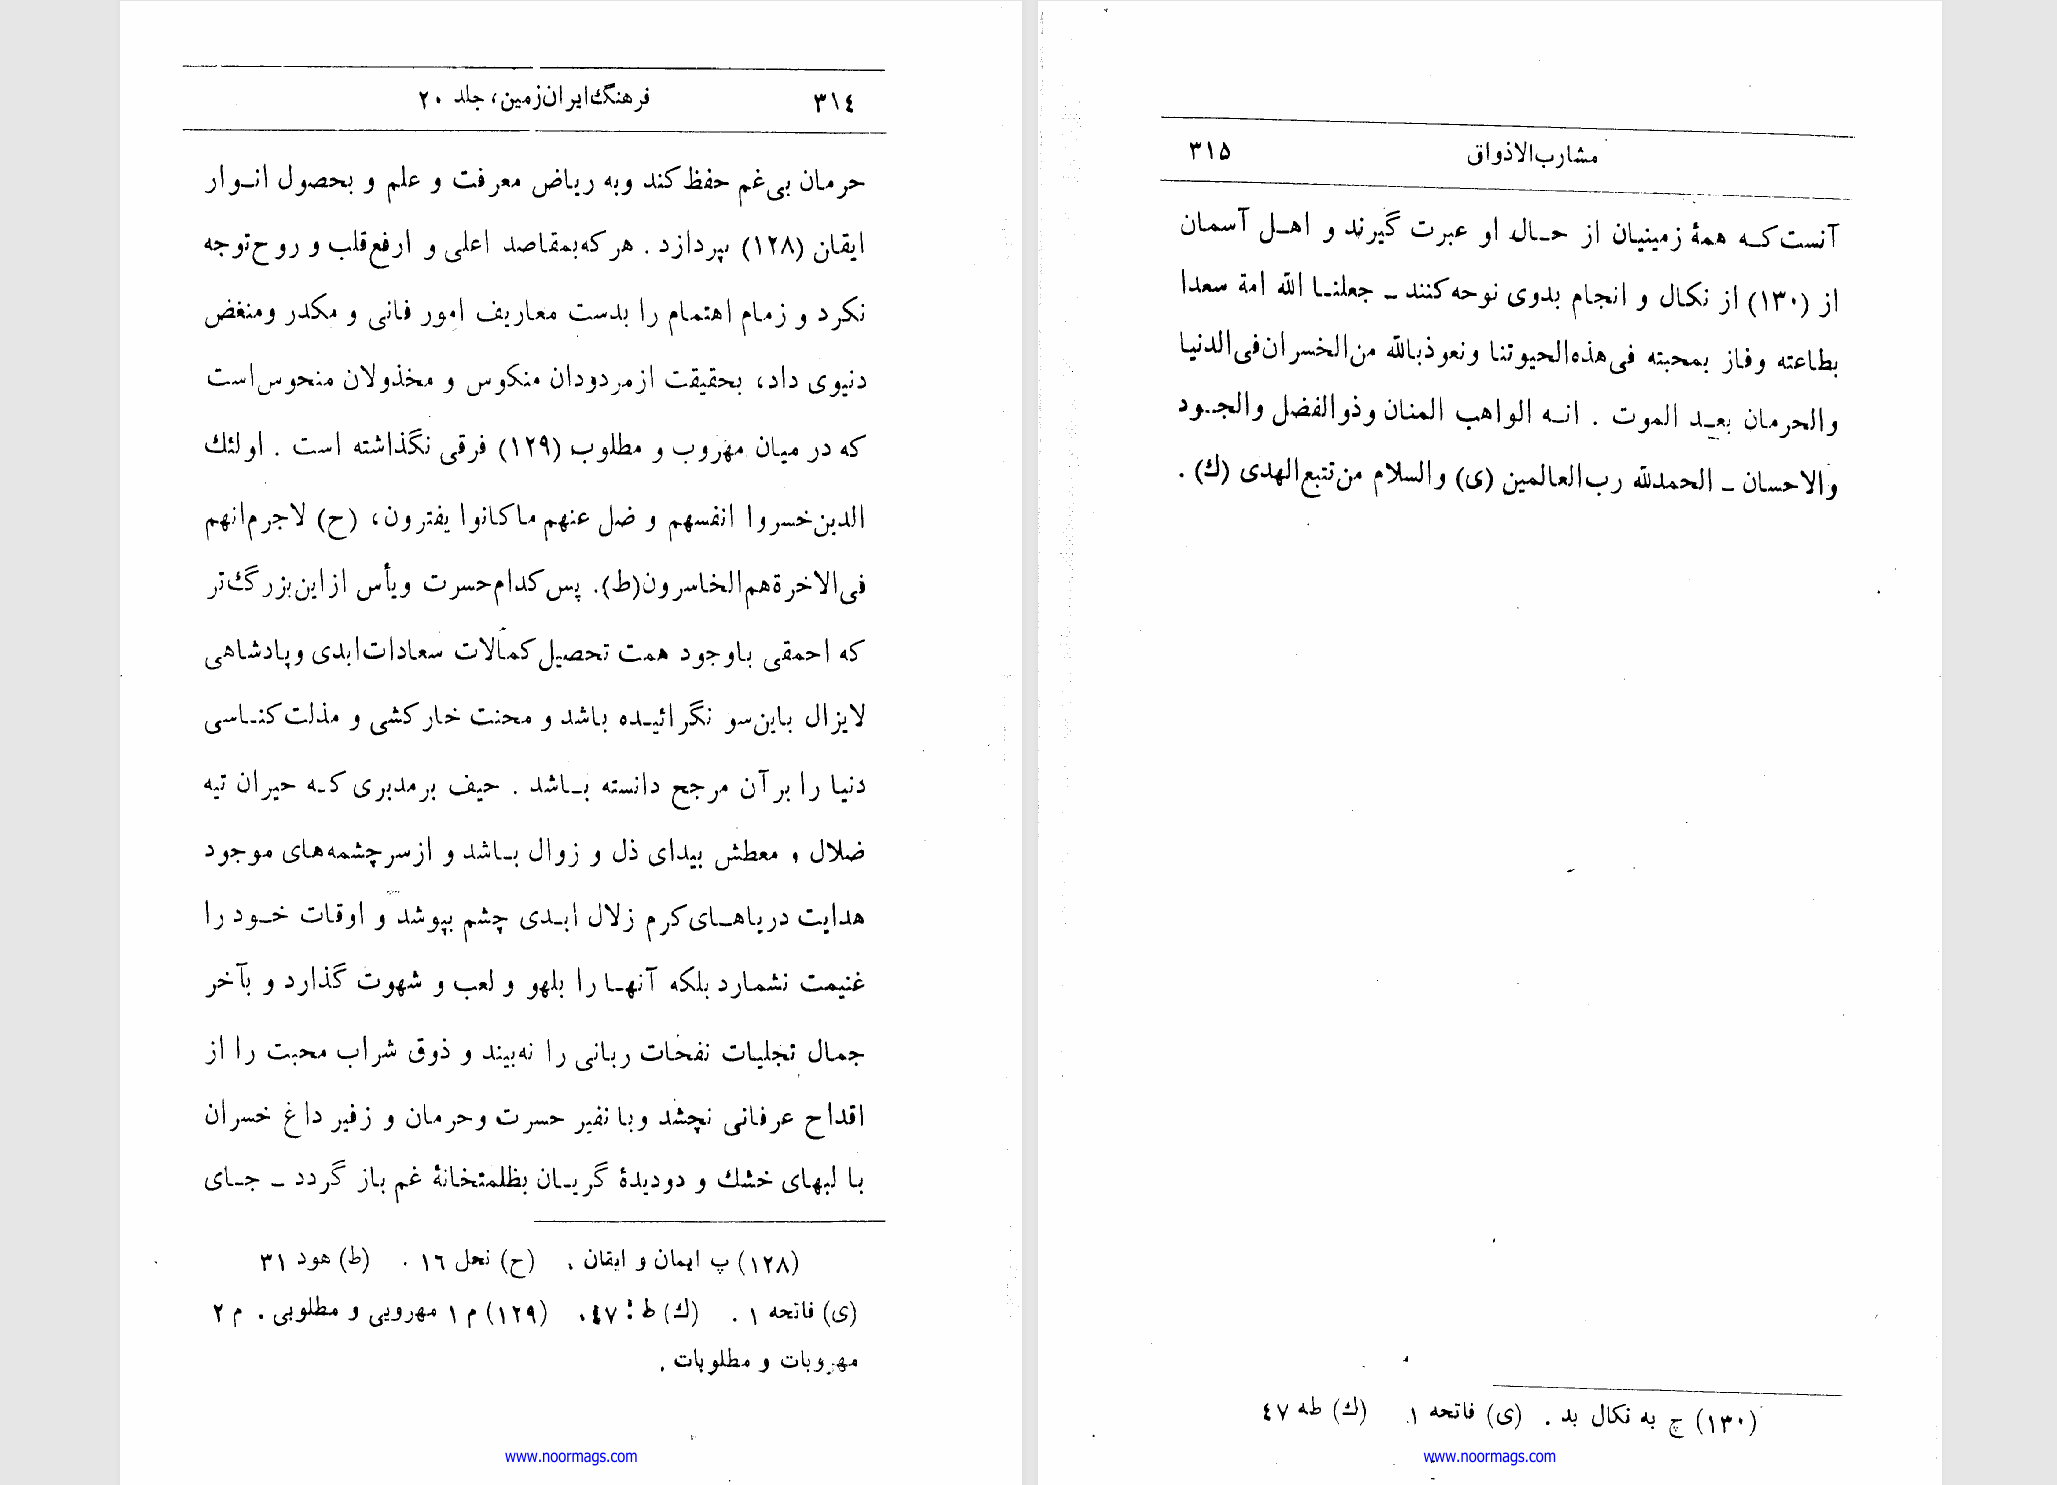 ٣١٤ فرهنگ ایران زمین، جلد ٢٠
حرمان بی‌غم حفظ کند وبه ریاض معرفت و علم و بحصول انـوار
ایقان (١٢٨) بپردازد . هرکه بمقاصد اعلی و ارفع قلب و روح توجه
نکرد و زمام اهتمام را بدست معاریف امور فانی و مکدر ومنغض
دنیوی داد، بحقیقت ازمردودان منکوس و مخذولان منحوس است
که در میان مهروب و مطلوب (١٢٩) فرقی نگذاشته است . اولئك
الدین خسروا انفسهم و ضل عنهم ماکانوا یفترون، (ح) لاجرم انهم
فی الاخرة هم الخاسرون(ط). پس کدام حسرت ویأس ازاین بزرگ‌تر
که احمقی باوجود همت تحصیل کمالات سعادات ابدی وپادشاهی
لایزال باین سو نگرائیـده باشد و محنت خارکشی و مذلت کنـاسی
دنیا را برآن مرجح دانسته بـاشد . حیف برمدبری کـه حیران تیه
ضلال و معطش بیدای ذل و زوال بـاشد و ازسرچشمه‌های موجود
هدایت دریاهـای کرم زلال ابـدی چشم بپوشد و اوقات خـود را
غنیمت نشمارد بلکه آنهـا را بلهو و لعب و شهوت گذارد و بآخر
جمال تجلیات نفحات ربانی را نه‌بیند و ذوق شراب محبت را از
اقداح عرفانی نچشد وبا نفیر حسرت وحرمان و زفیر داغ خسران
با لبهای خشك و دودیدهٔ گریـان بظلمتخانهٔ غم باز گردد ـ جـای
(١٢٨) پ ایمان و ایقان . (ح) نحل ١٦ . (ط) هود ٣١
(ی) فاتحه ١ . (ك) ط : ٤٧. (١٢٩) م ١ مهروبی و مطلوبی . م ٢
مهروبات و مطلوبات .
www.noormags.com
مشارب‌الاذواق ٣١۵
آنست کـه همهٔ زمینیان از حـال او عبرت گیرند و اهـل آسمان
از (١٣٠) از نکال و انجام بدوی نوحه کنند ـ جعلنـا الله امة سعدا
بطاعته وفاز بمحبته فی هذه الحیوتنا ونعوذبالله من الخسران فی الدنیا
والحرمان بعـد الموت . انـه الواهب المنان وذوالفضل والجـود
والاحسان ـ الحمدلله رب العالمین (ی) والسلام من تتبع الهدی (ك) .
(١٣٠) ج به نکال بد . (ی) فاتحه ١. (ك) طه ٤٧
www.noormags.com